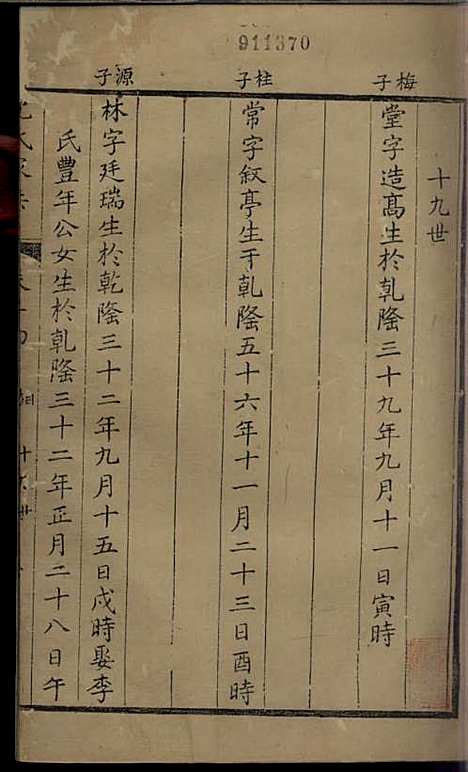 911370
十九世
梅子
堂字造高生於乹隆三十九年九月十一日寅時
柱子
常字叙亭生于乹隆五十六年十一月二十三日酉時
源子
林字廷瑞生於乾隆三十二年九月十五日戍時娶李
氏豊年公女生於乹隆三十二年正月二十八日午